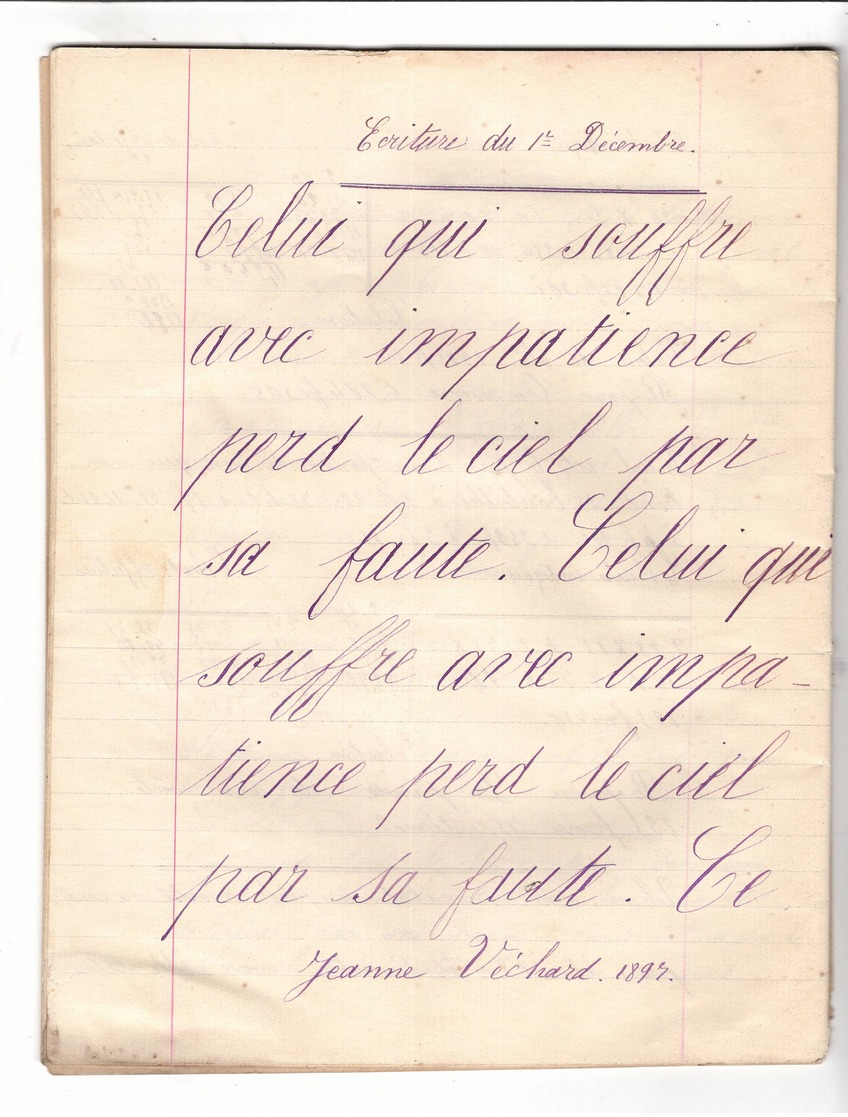 Ecriture du 1er Décembre.
Celui qui souffre
avec impatience
perd le ciel par
sa faute. Celui qui
souffre avec impa-
tience perd le ciel
par sa faute. Ce
Jeanne Véchard. 1897.